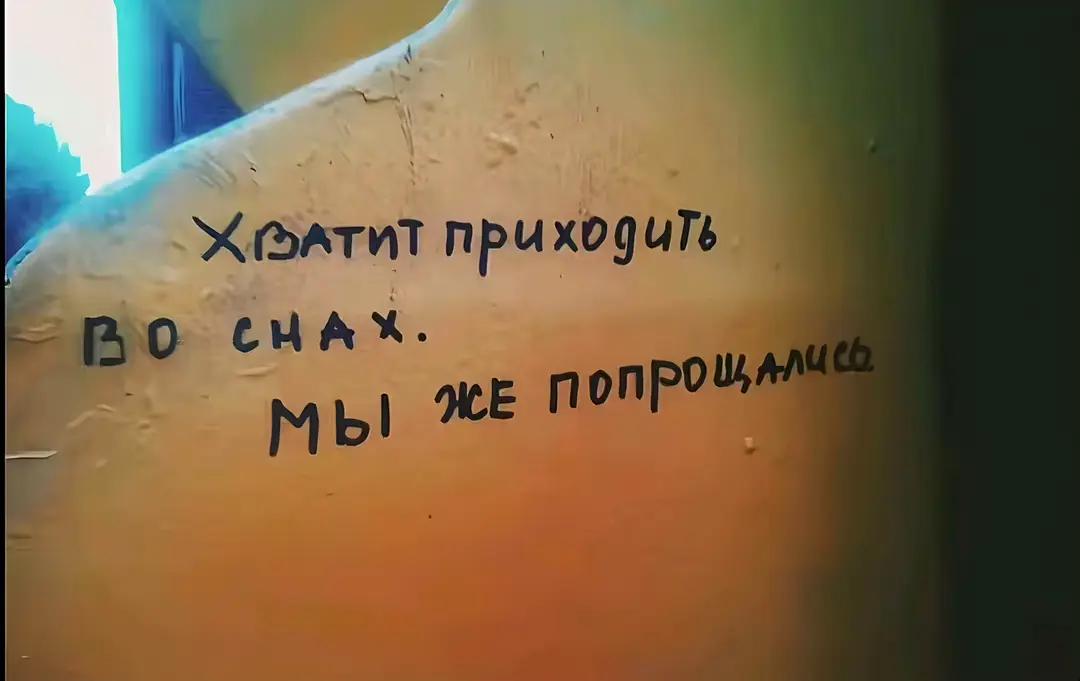 Хватит приходить
во снах.
Мы же попрощались